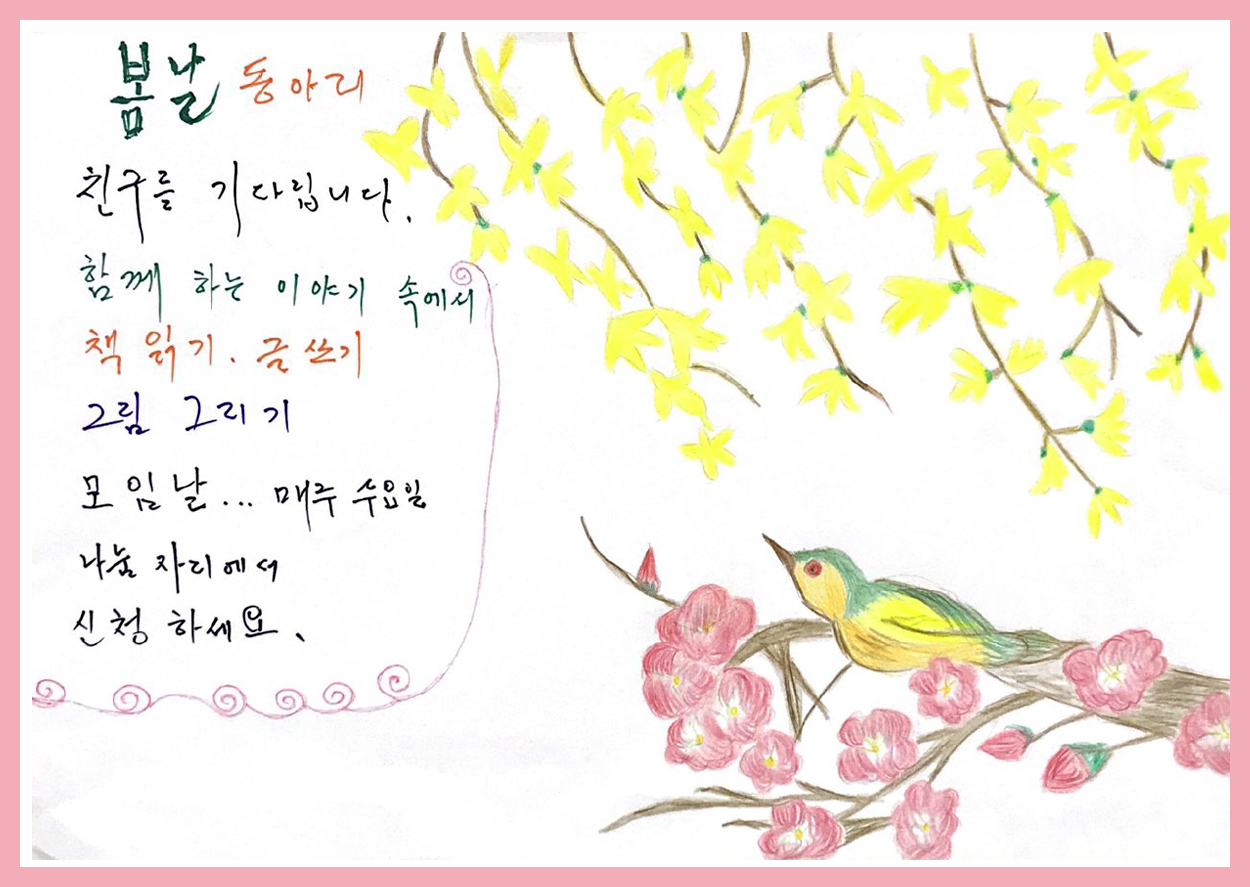 봄날 동아리
친구를 기다립니다.
함께 하는 이야기 속에서
책 읽기. 글쓰기
그림 그리기
모임날... 매주 수요일
나눔 자리에서
신청 하세요.